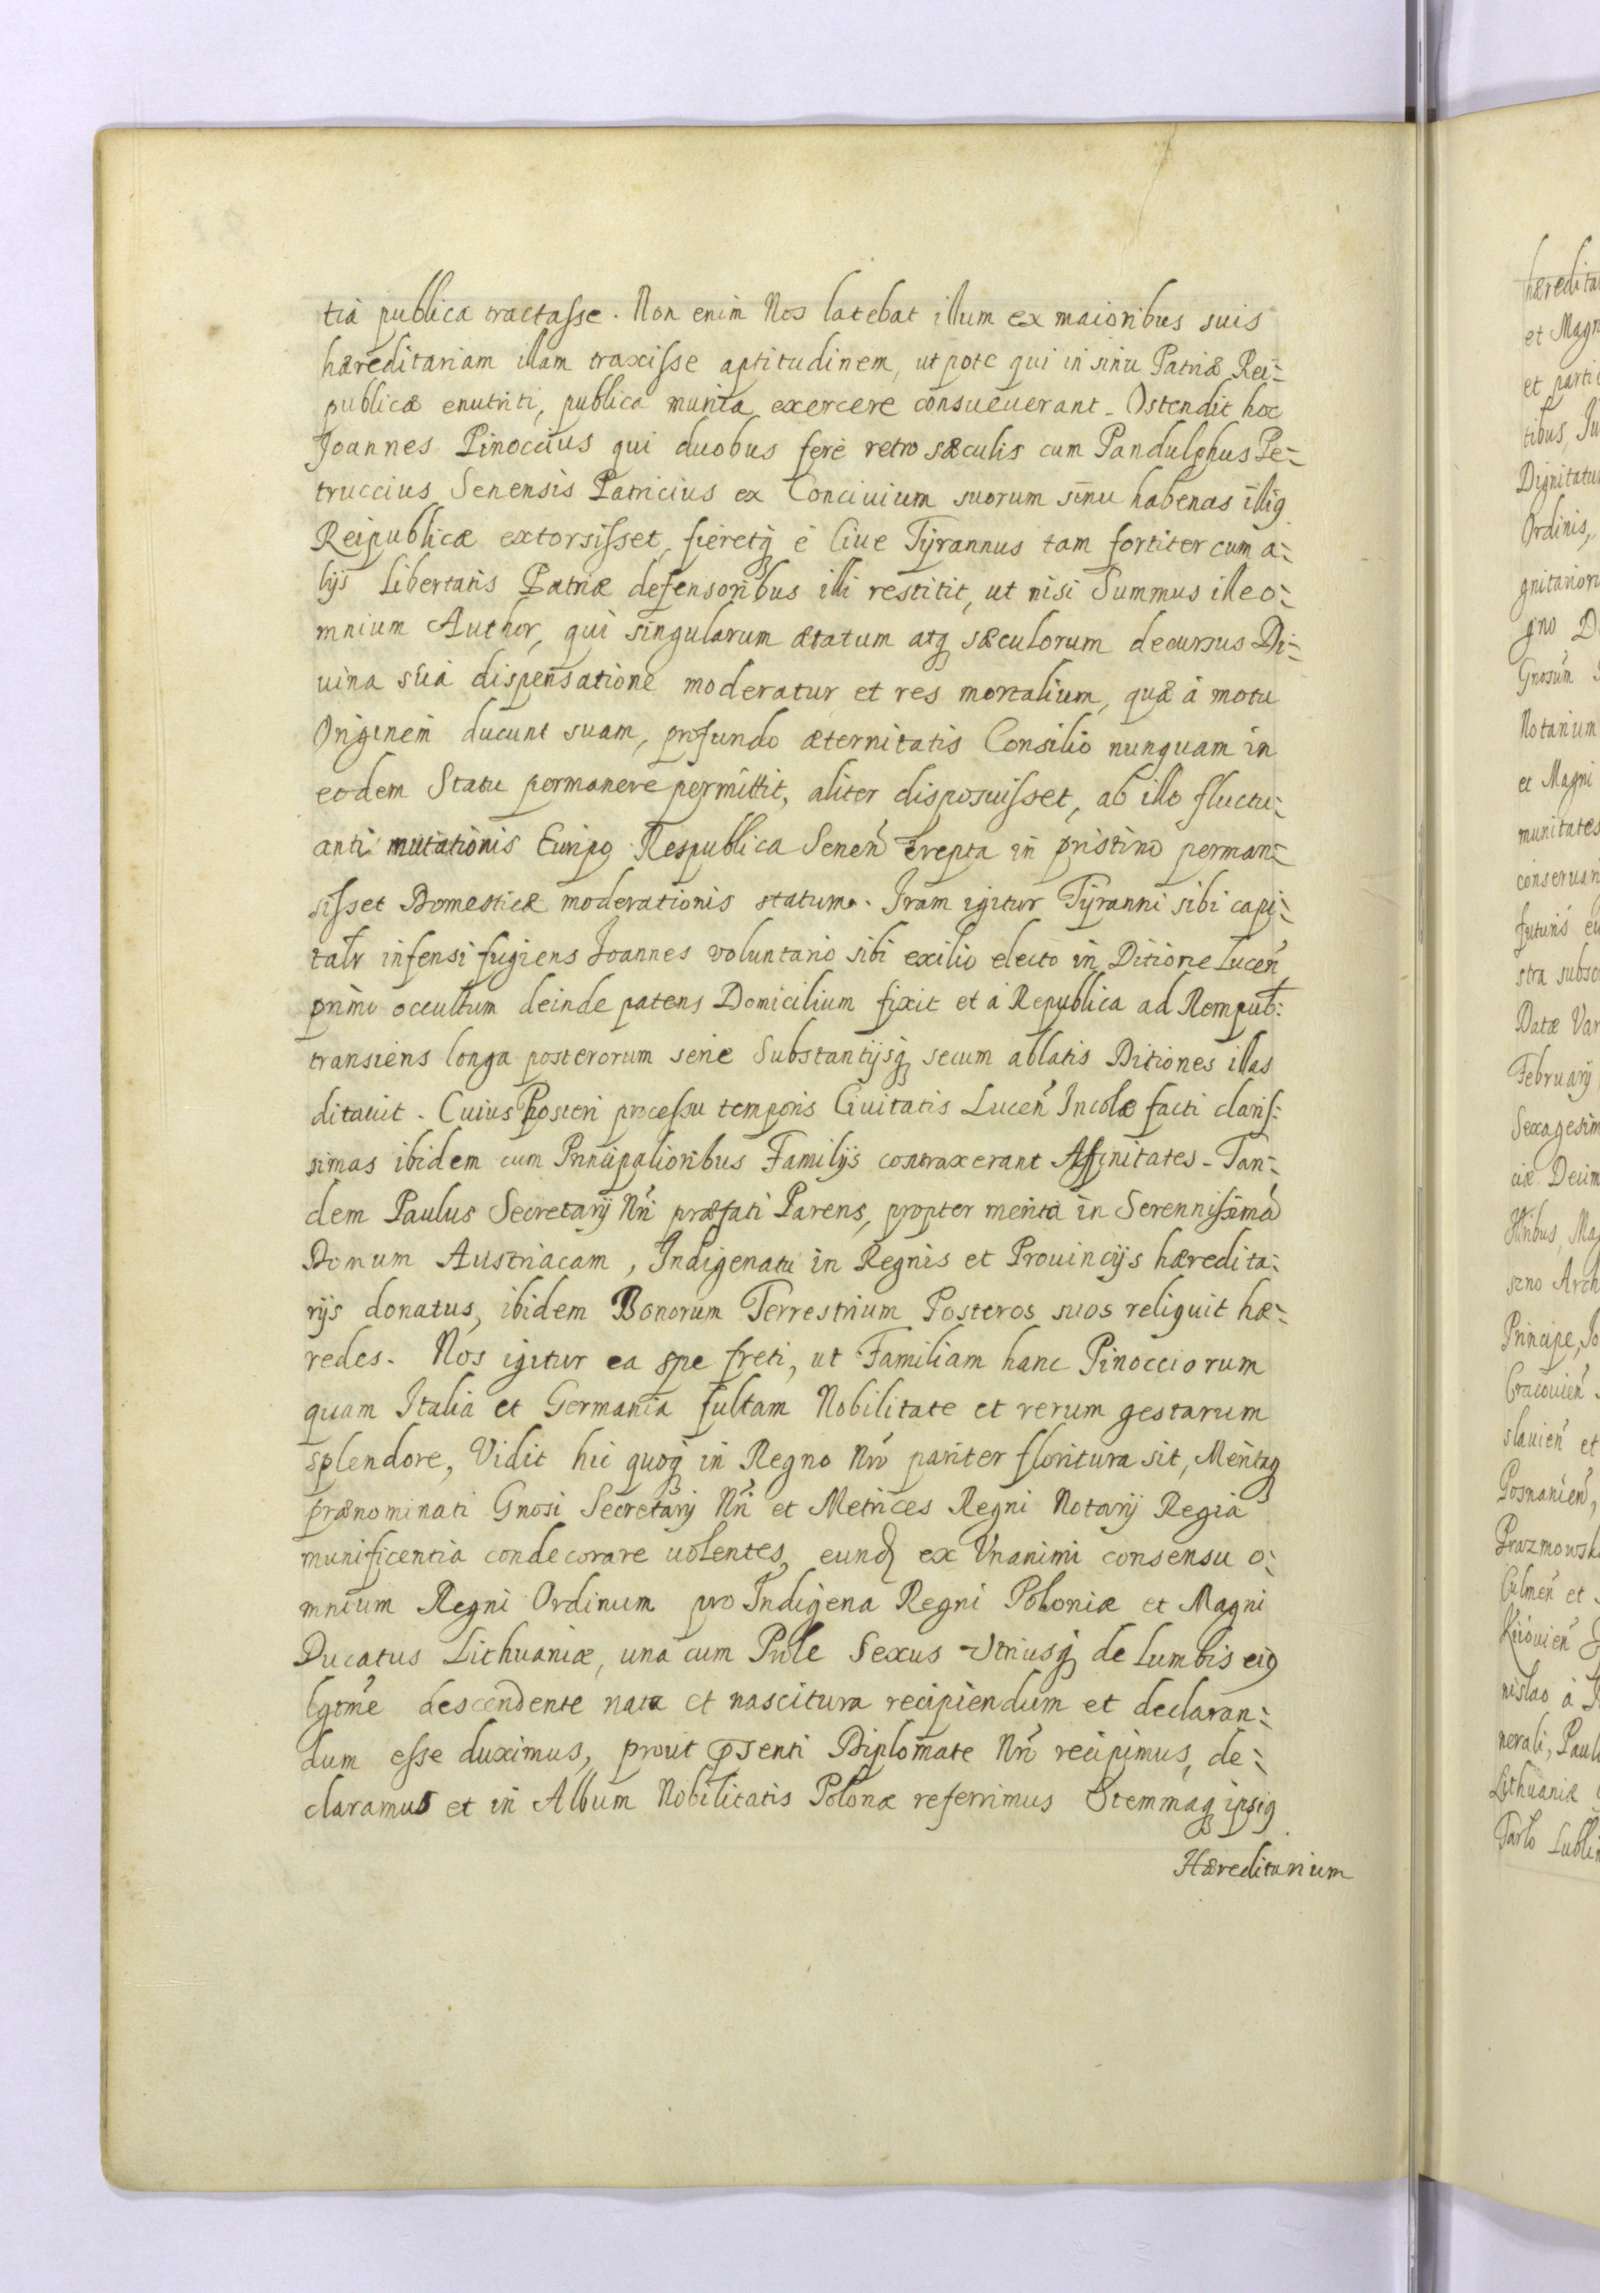 tia publica tractasse. Non enim Nos latebat illum ex maioribus suis
hæreditariam illam traxisse aptitudinem, ut pote qui in sinu Patriæ Rei-
publicæ enutriti, publica munia exercere consueuerant. Ostendit hoc
Joannes Pinoccius qui duobus ferè retro sæculis cum Pandulphus Pe-
truccius Senensis Patricius ex Conciuium suorum sinu habenas illiꝰ
Reipublicæ extorsisset, fieretq; è Ciue Tyrannus tam fortiter cum a-
lijs Libertatis Patriæ defensoribus illi restitit, ut nisi Summus ille o-
mnium Author, qui singularum ætatum atq; sæculorum decursus Di-
uina suâ dispensatione moderatur et res mortalium, quæ à motu
Originem ducunt suam, profundo æternitatis Consilio nunquam in
eodem Statu permanere permittit, aliter disposuisset, ab illo fluctu-
anti mutationis Euripo Respublica Seneñ Erepta in pristino perman-
sisset Domesticæ moderationis statum. Iram igitur Tyranni sibi capi-
talr infensi fugiens Joannes voluntario sibi exilio electo in Ditione Luceñ
primo occultum deinde patens Domicilium fixit et à Republica ad Rempub:
transiens longa posterorum serie Substantijsq; secum ablatis Ditiones illas
ditauit. Cuius Posteri processu temporis Ciuitatis Luceñ Incolæ facti claris-
simas ibidem cum Principalioribus Familijs contraxerant Affinitates. Tan-
dem Paulus Secretarij Nri præfati Parens, propter merita in Serennissimã
Domum Austriacam, Indigenatu in Regnis et Prouincijs hæredita-
rijs donatus, ibidem Bonorum Terrestrium Posteros suos reliquit hæ-
redes. Nos igitur ea spe freti, ut Familiam hanc Pinocciorum
quam Italia et Germania fultam Nobilitate et rerum gestarum
splendore, Vidit hic quoq; in Regno Nro pariter floritura sit, Meritaq;
prænominati Gnosi Secretarij Nri et Metrices Regni Notarij Regia
munificentia condecorare uolentes, eund ex Vnanimi consensu o-
mnium Regni Ordinum pro Indigena Regni Poloniæ et Magni
Ducatus Lithuaniæ, una cum Prole Sexus Vtriusq; de Lumbis eiꝰ
lgtme descendente nata et nascitura recipiendum et declaran-
dum esse duximus, prout pSenti Diplomate Nro recipimus, de-
claramus et in Album Nobilitatis Polonæ referrimus Stemmaq; ipsiꝰ
Hæreditarium
hæredita
et Magn
et parti
tibus, Ju
Dignitatu
Ordinis,
gnitarior
gno D
Gnosum
Notarium
et Magni
munitates
conseruan
futuris eu
stra subsc
Datæ Var
February
Sexagesim
ciæ Decim
Ma
Arch
Principe, Jo
Cracouień
slauień et
Posnanień,
Prazmowsk
Culmeń et
Kiiouień
nislao à
nerali, Paul
Lithuaniæ
Tarlo Lubli